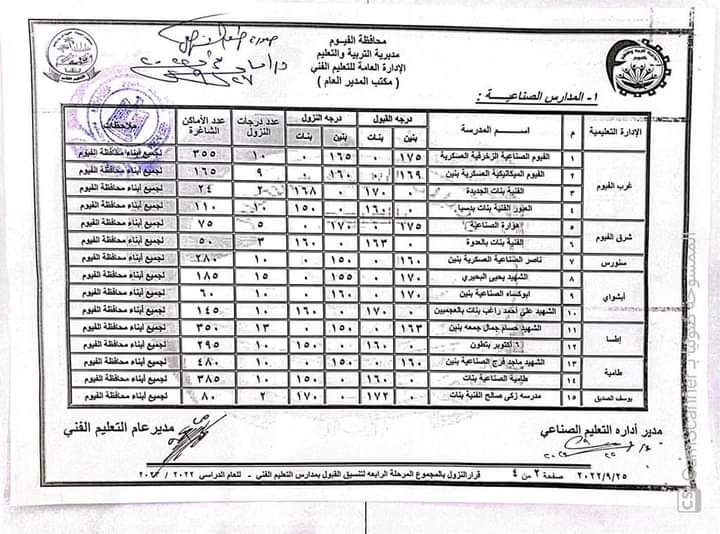 محافظة الفيوم
مديرية التربية والتعليم
الإدارة العامة للتعليم الفني
( مكتب المدير العام )
١- المدارس الصناعية :
الإدارة التعليمية | م | اسم المدرسة | درجه القبول | درجه النزول | عدد درجات النزول | عدد الأماكن الشاغرة | ملاحظات
بنين | بنات | بنين | بنات
غرب الفيوم | ١ | الفيوم الصناعية الزخرفية العسكرية | ١٧٥ | ٠ | ١٦٥ | ٠ | ١٠ | ٣٥٥ | لجميع أبناء محافظة الفيوم
٢ | الفيوم الميكانيكية العسكرية بنين | ١٦٩ | ٠ | ١٦٠ | ٠ | ٩ | ١٦٥ | لجميع أبناء محافظة الفيوم
٣ | الفنية بنات الجديدة | ٠ | ١٧٠ | ٠ | ١٦٨ | ٢ | ٢٤ | لجميع أبناء محافظة الفيوم
٤ | الفنية بنات بدسيا | ٠ | ١٦٠ | ٠ | ١٥٠ | ١٠ | ١١٠ | لجميع أبناء محافظة الفيوم
شرق الفيوم | ٥ | هوارة الصناعية | ١٧٥ | ٠ | ١٧٠ | ٠ | ٥ | ٧٥ | لجميع أبناء محافظة الفيوم
٦ | الفنية بنات بالعدوة | ٠ | ١٦٣ | ٠ | ١٦٠ | ٣ | ٥٠ | لجميع أبناء محافظة الفيوم
سنورس | ٧ | ناصر الصناعية العسكرية بنين | ١٦٠ | ٠ | ١٥٠ | ٠ | ١٠ | ٢٨٠ | لجميع أبناء محافظة الفيوم
أبشواي | ٨ | الشهيد يحيى البحيري | ١٧٠ | ٠ | ١٥٥ | ٠ | ١٥ | ١٨٥ | لجميع أبناء محافظة الفيوم
٩ | ابوكساه الصناعية بنين | ١٧٠ | ٠ | ١٦٠ | ٠ | ١٠ | ٦٠ | لجميع أبناء محافظة الفيوم
١٠ | الشهيد علي أحمد راغب بنات بالعجميين | ٠ | ١٧٠ | ٠ | ١٦٠ | ١٠ | ١٤٥ | لجميع أبناء محافظة الفيوم
إطسا | ١١ | الشهيد حسام جمال جمعه بنين | ١٦٣ | ٠ | ١٥٠ | ٠ | ١٣ | ٣٥٠ | لجميع أبناء محافظة الفيوم
١٢ | ٦ أكتوبر بتطون | ٠ | ١٦٠ | ٠ | ١٥٠ | ١٠ | ٢٩٥ | لجميع أبناء محافظة الفيوم
طامية | ١٣ | الشهيد ماجد فرج الصناعية بنين | ١٦٠ | ٠ | ١٥٠ | ٠ | ١٠ | ٤٨٠ | لجميع أبناء محافظة الفيوم
١٤ | طامية الصناعية بنات | ٠ | ١٦٠ | ٠ | ١٥٠ | ١٠ | ٣٨٥ | لجميع أبناء محافظة الفيوم
يوسف الصديق | ١٥ | مدرسه زكى صالح الفنية بنات | ٠ | ١٧٢ | ٠ | ١٧٠ | ٢ | ٨٠ | لجميع أبناء محافظة الفيوم
مدير أداره التعليم الصناعي
مدير عام التعليم الفني
٢٠٢٢/٩/٢٥ صفحة ٢ من ٤ قرار النزول بالمجموع المرحلة الرابعه لتنسيق القبول بمدارس التعليم الفني - للعام الدراسي ٢٠٢٢ / ٢٠٢٣
الممسوحة ضوئيا بـ CamScanner